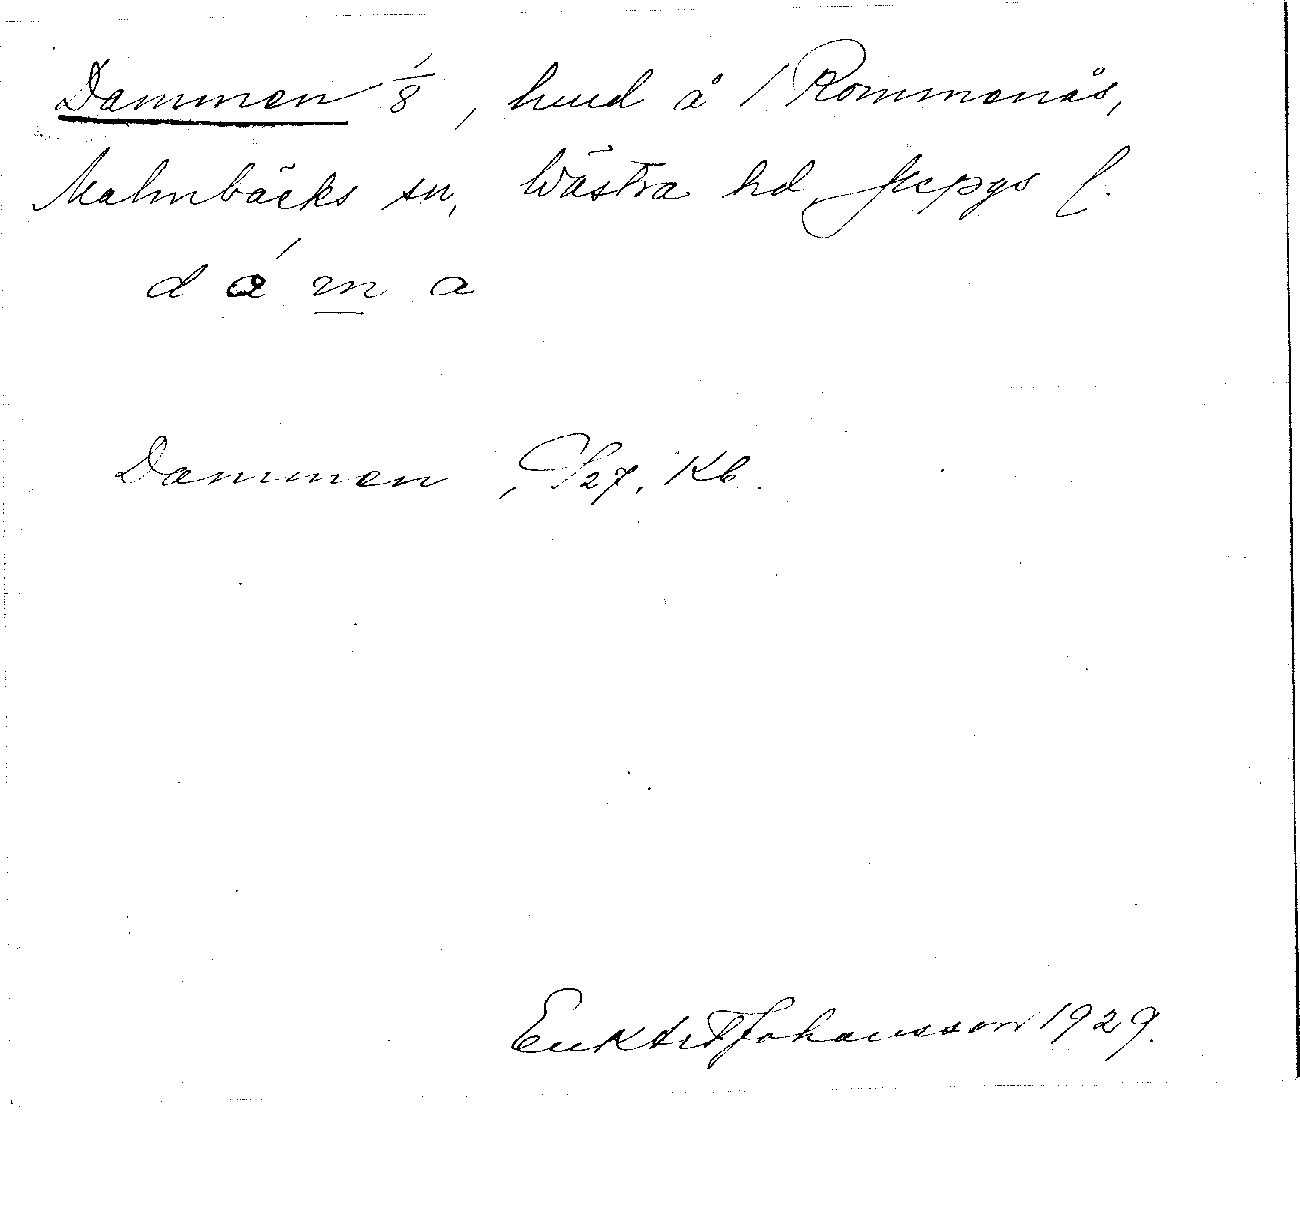 Dammen 1/8, hmd å 1 Rommenås,
Malmbäcks sn, Västra hd Jkpgs l.
d á m a
Dammen, /27. Kb.
Johansson 1929.